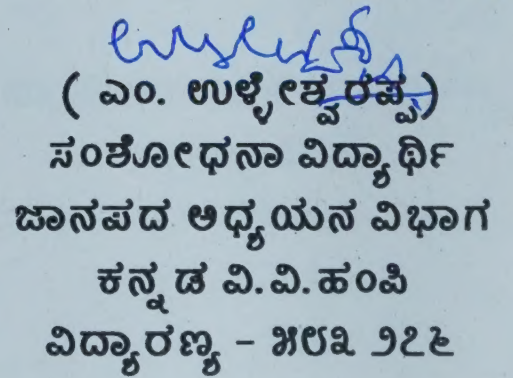 ( ಎಂ. ಉಳ್ಳೇಶ್ವರಪ್ಪ )
ಸಂಶೋಧನಾ ವಿದ್ಯಾರ್ಥಿ
ಜಾನಪದ ಅಧ್ಯಯನ ವಿಭಾಗ
ಕನ್ನಡ ವಿ.ವಿ.ಹಂಪಿ
ವಿದ್ಯಾರಣ್ಯ - ೫೮೩ ೨೭೬